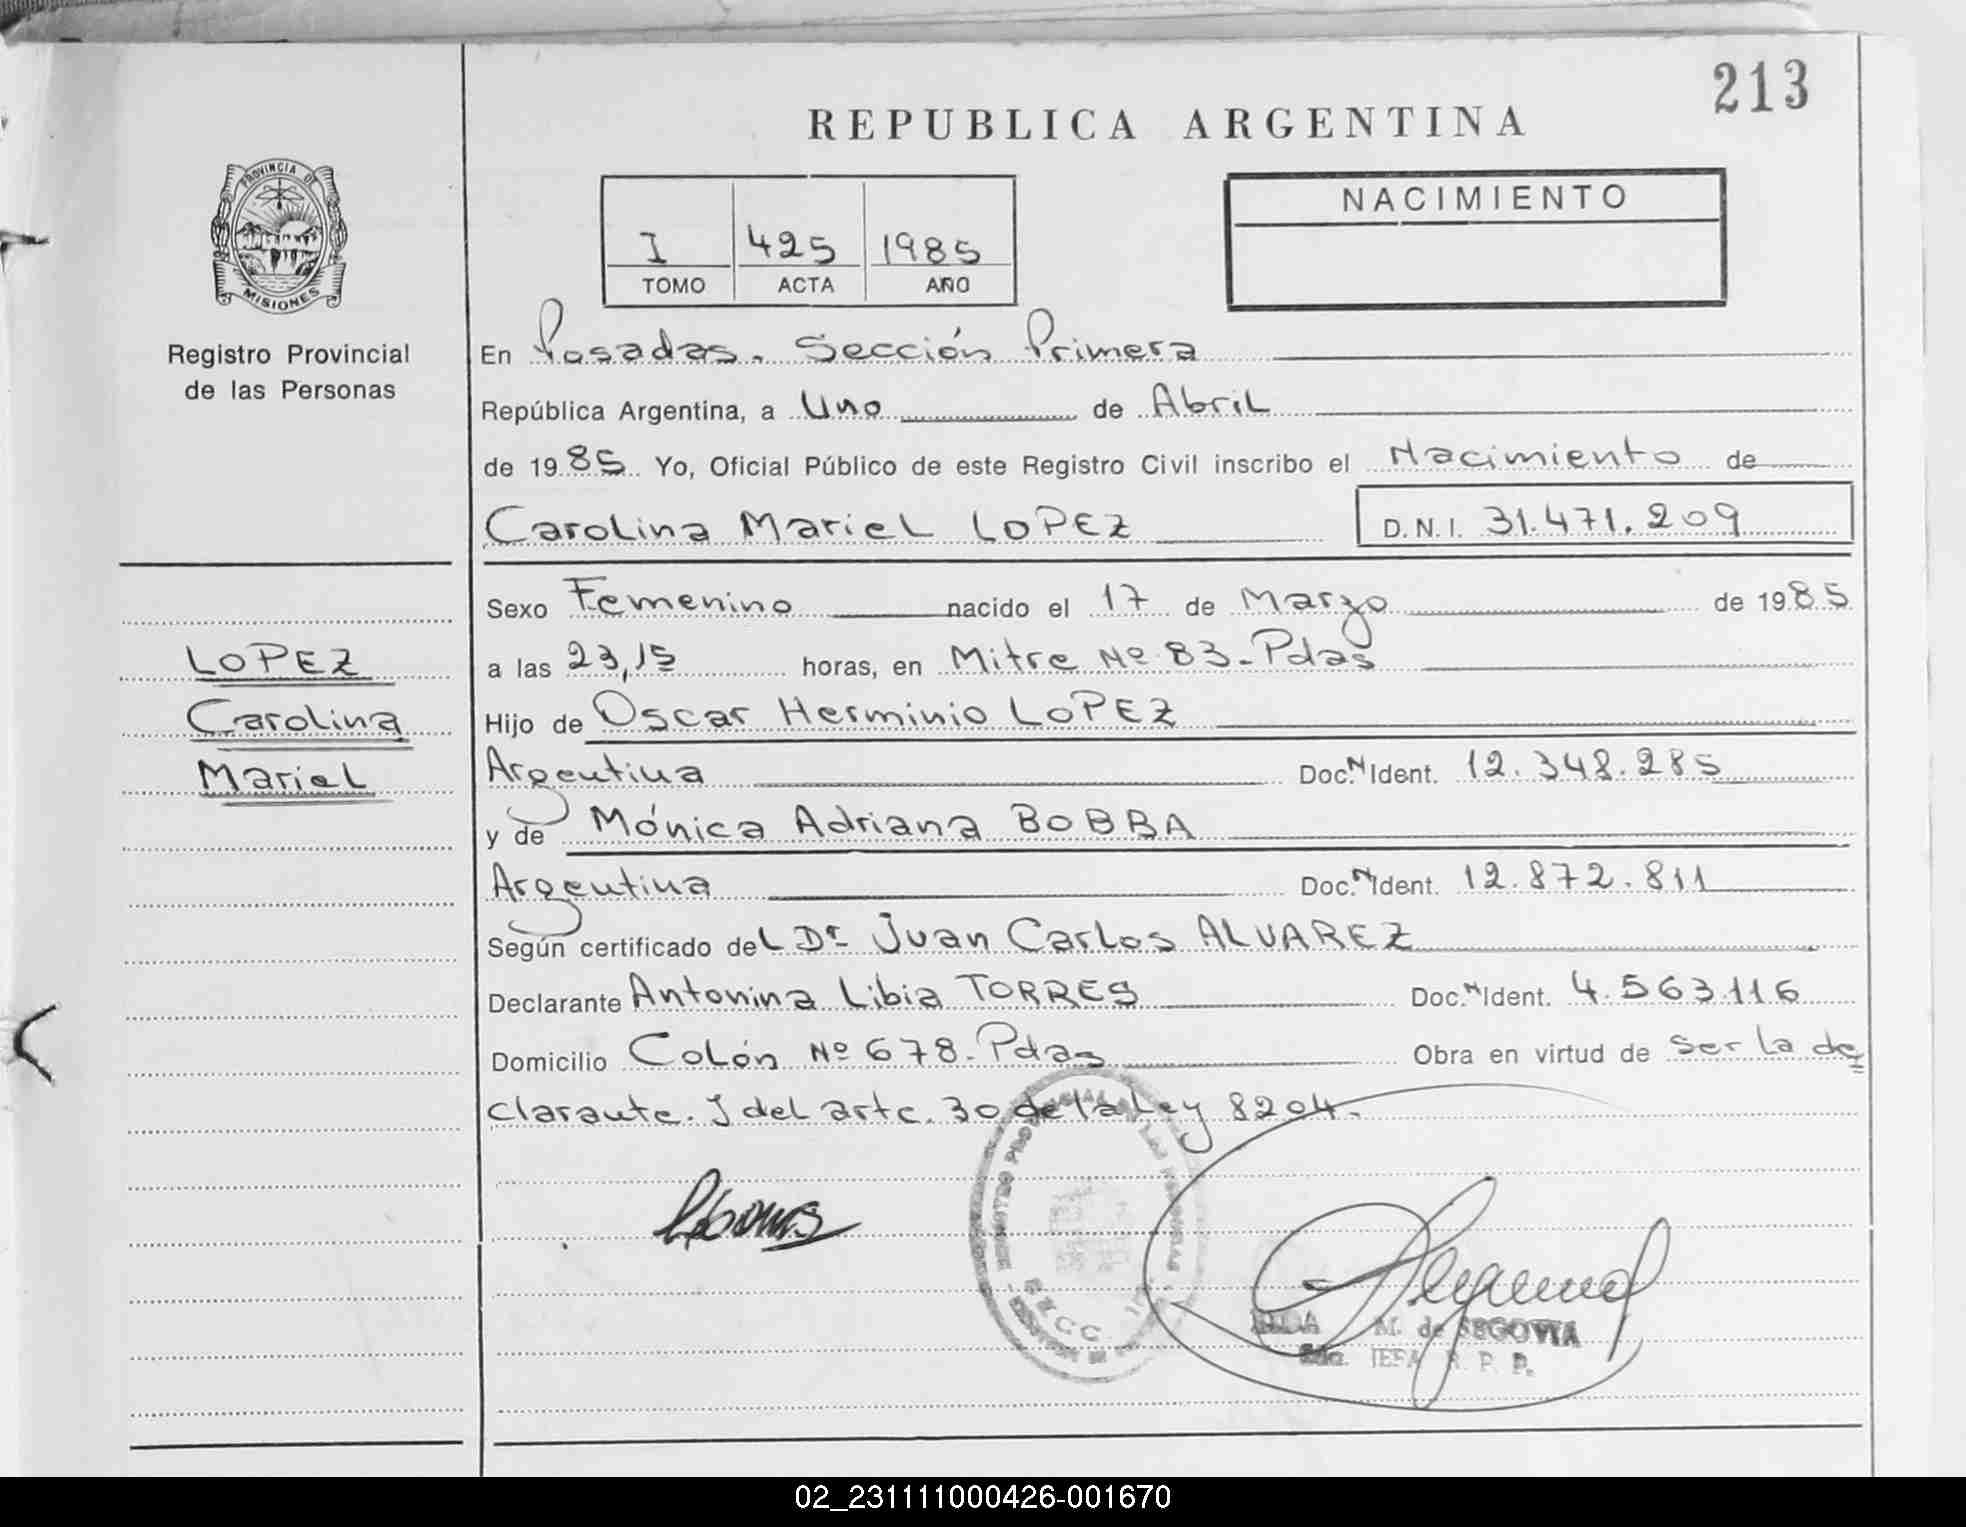 213
REPUBLICA ARGENTINA
PROVINCIA DE
MISIONES
Registro Provincial
de las Personas
I 425 1985
TOMO ACTA AÑO
NACIMIENTO
En Posadas. Sección Primera
República Argentina, a Uno de Abril
de 1985 Yo, Oficial Público de este Registro Civil inscribo el Nacimiento de
Carolina Mariel LOPEZ D.N.I. 31.471.209
Sexo Femenino nacido el 17 de Marzo de 1985
LOPEZ
Carolina
Mariel
a las 23,15 horas, en Mitre Nº 83-Pdas
Hijo de Oscar Herminio LOPEZ
Argentina Doc. N Ident. 12.348.285
y de Mónica Adriana BOBBA
Argentina Doc. N Ident. 12.872.811
Según certificado del Dr Juan Carlos ALVAREZ
Declarante Antonina Libia TORRES Doc. N Ident. 4.563.116
Domicilio Colón Nº 678-Pdas Obra en virtud de ser la de
clarante. J del artc. 30 de la Ley 8204.
M. de SEGOVIA
R. P. P.
02_231111000426-001670